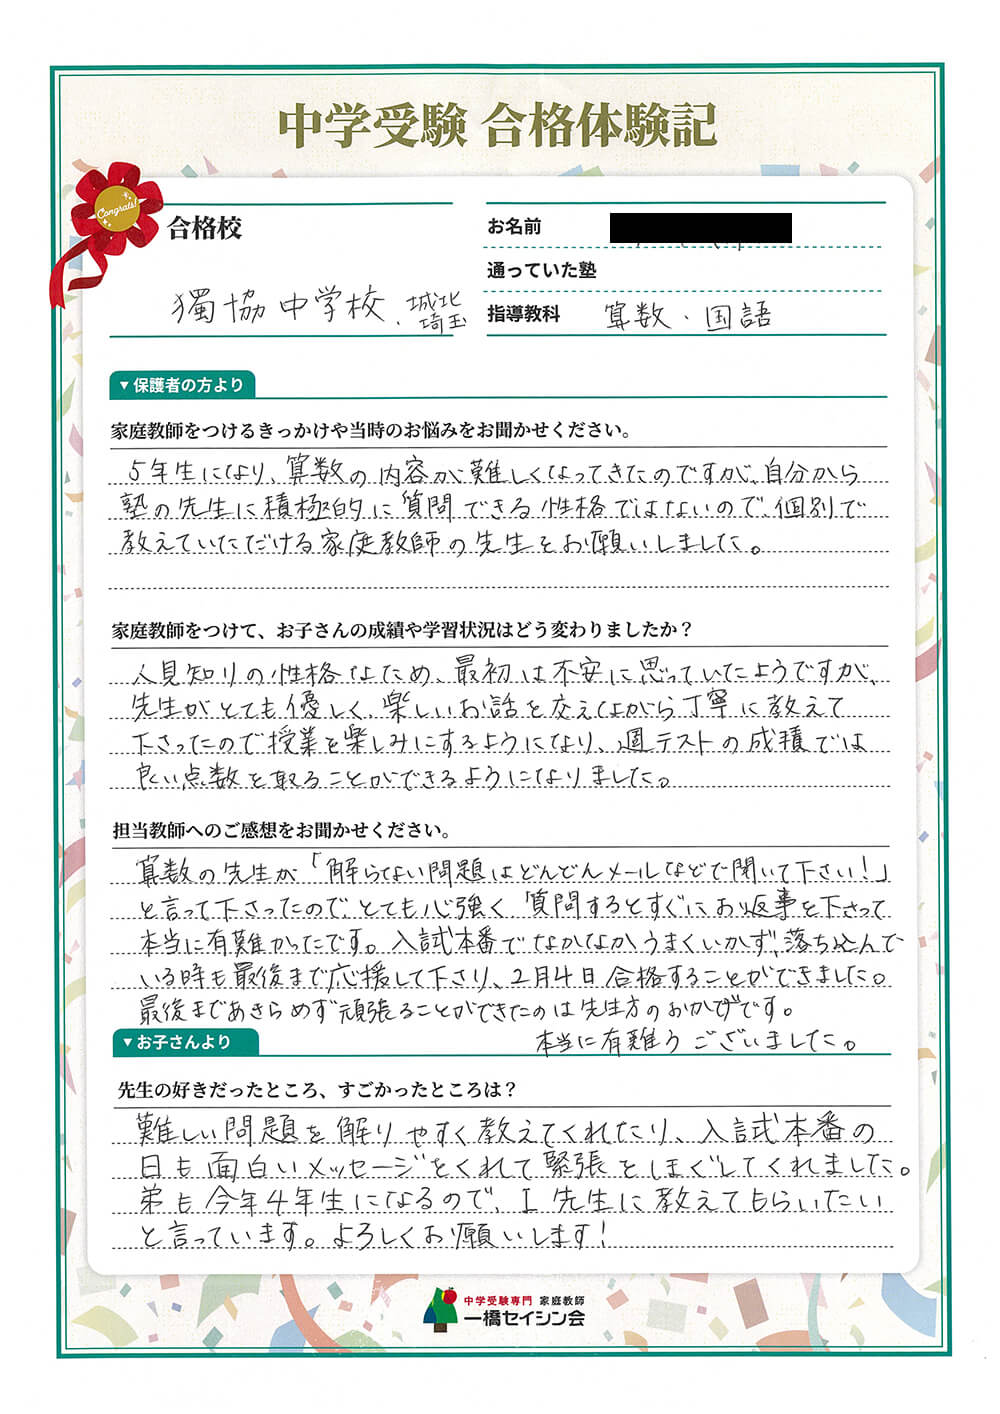 中学受験 合格体験記
Congrats!
合格校
獨協中学校、城北
埼玉
お名前
通っていた塾
指導教科 算数・国語
▼保護者の方より
家庭教師をつけるきっかけや当時のお悩みをお聞かせください。
5年生になり、算数の内容が難しくなってきたのですが、自分から
塾の先生に積極的に質問できる性格ではないので、個別で
教えていただける家庭教師の先生をお願いしました。
家庭教師をつけて、お子さんの成績や学習状況はどう変わりましたか？
人見知りの性格なため、最初は不安に思っていたようですが、
先生がとても優しく、楽しいお話を交えながら丁寧に教えて
下さったので授業を楽しみにするようになり、週テストの成積では
良い点数を取ることができるようになりました。
担当教師へのご感想をお聞かせください。
算数の先生が「解らない問題はどんどんメールなどで聞いて下さい！」
と言って下さったので、とても心強く 質問するとすぐにお返事を下さって
本当に有難かったです。入試本番でなかなかうまくいかず、落ち込んで
いる時も最後まで応援して下さり、2月4日合格することができました。
最後まであきらめず頑張ることができたのは先生方のおかげです。
本当に有難うございました。
▼お子さんより
先生の好きだったところ、すごかったところは？
難しい問題を解りやすく教えてくれたり、入試本番の
日も面白いメッセージをくれて緊張をほぐしてくれました。
弟も今年4年生になるので、I先生に教えてもらいたい
と言っています。よろしくお願いします！
中学受験専門 家庭教師
一橋セイシン会